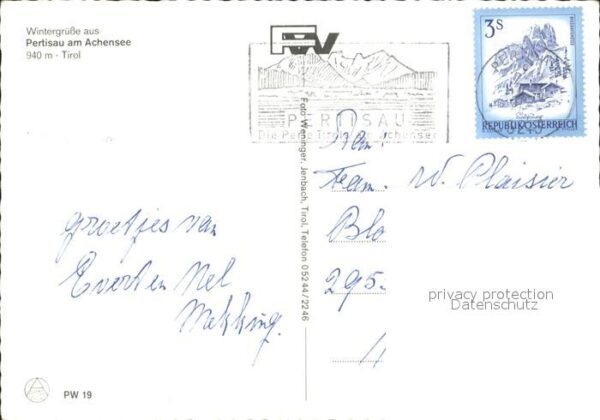 Wintergrüße aus
Pertisau am Achensee
940 m - Tirol
3S
REPUBLIK ÖSTERREICH
PERTISAU
Die Perle Tirols am Achensee
Foto Weninger, Jenbach, Tirol, Telefon 05244/2246
Fam.
Fam. W. Plaisier
Blo
295.
groetjes van
Evert en Nel
privacy protection
Datenschutz
PW 19